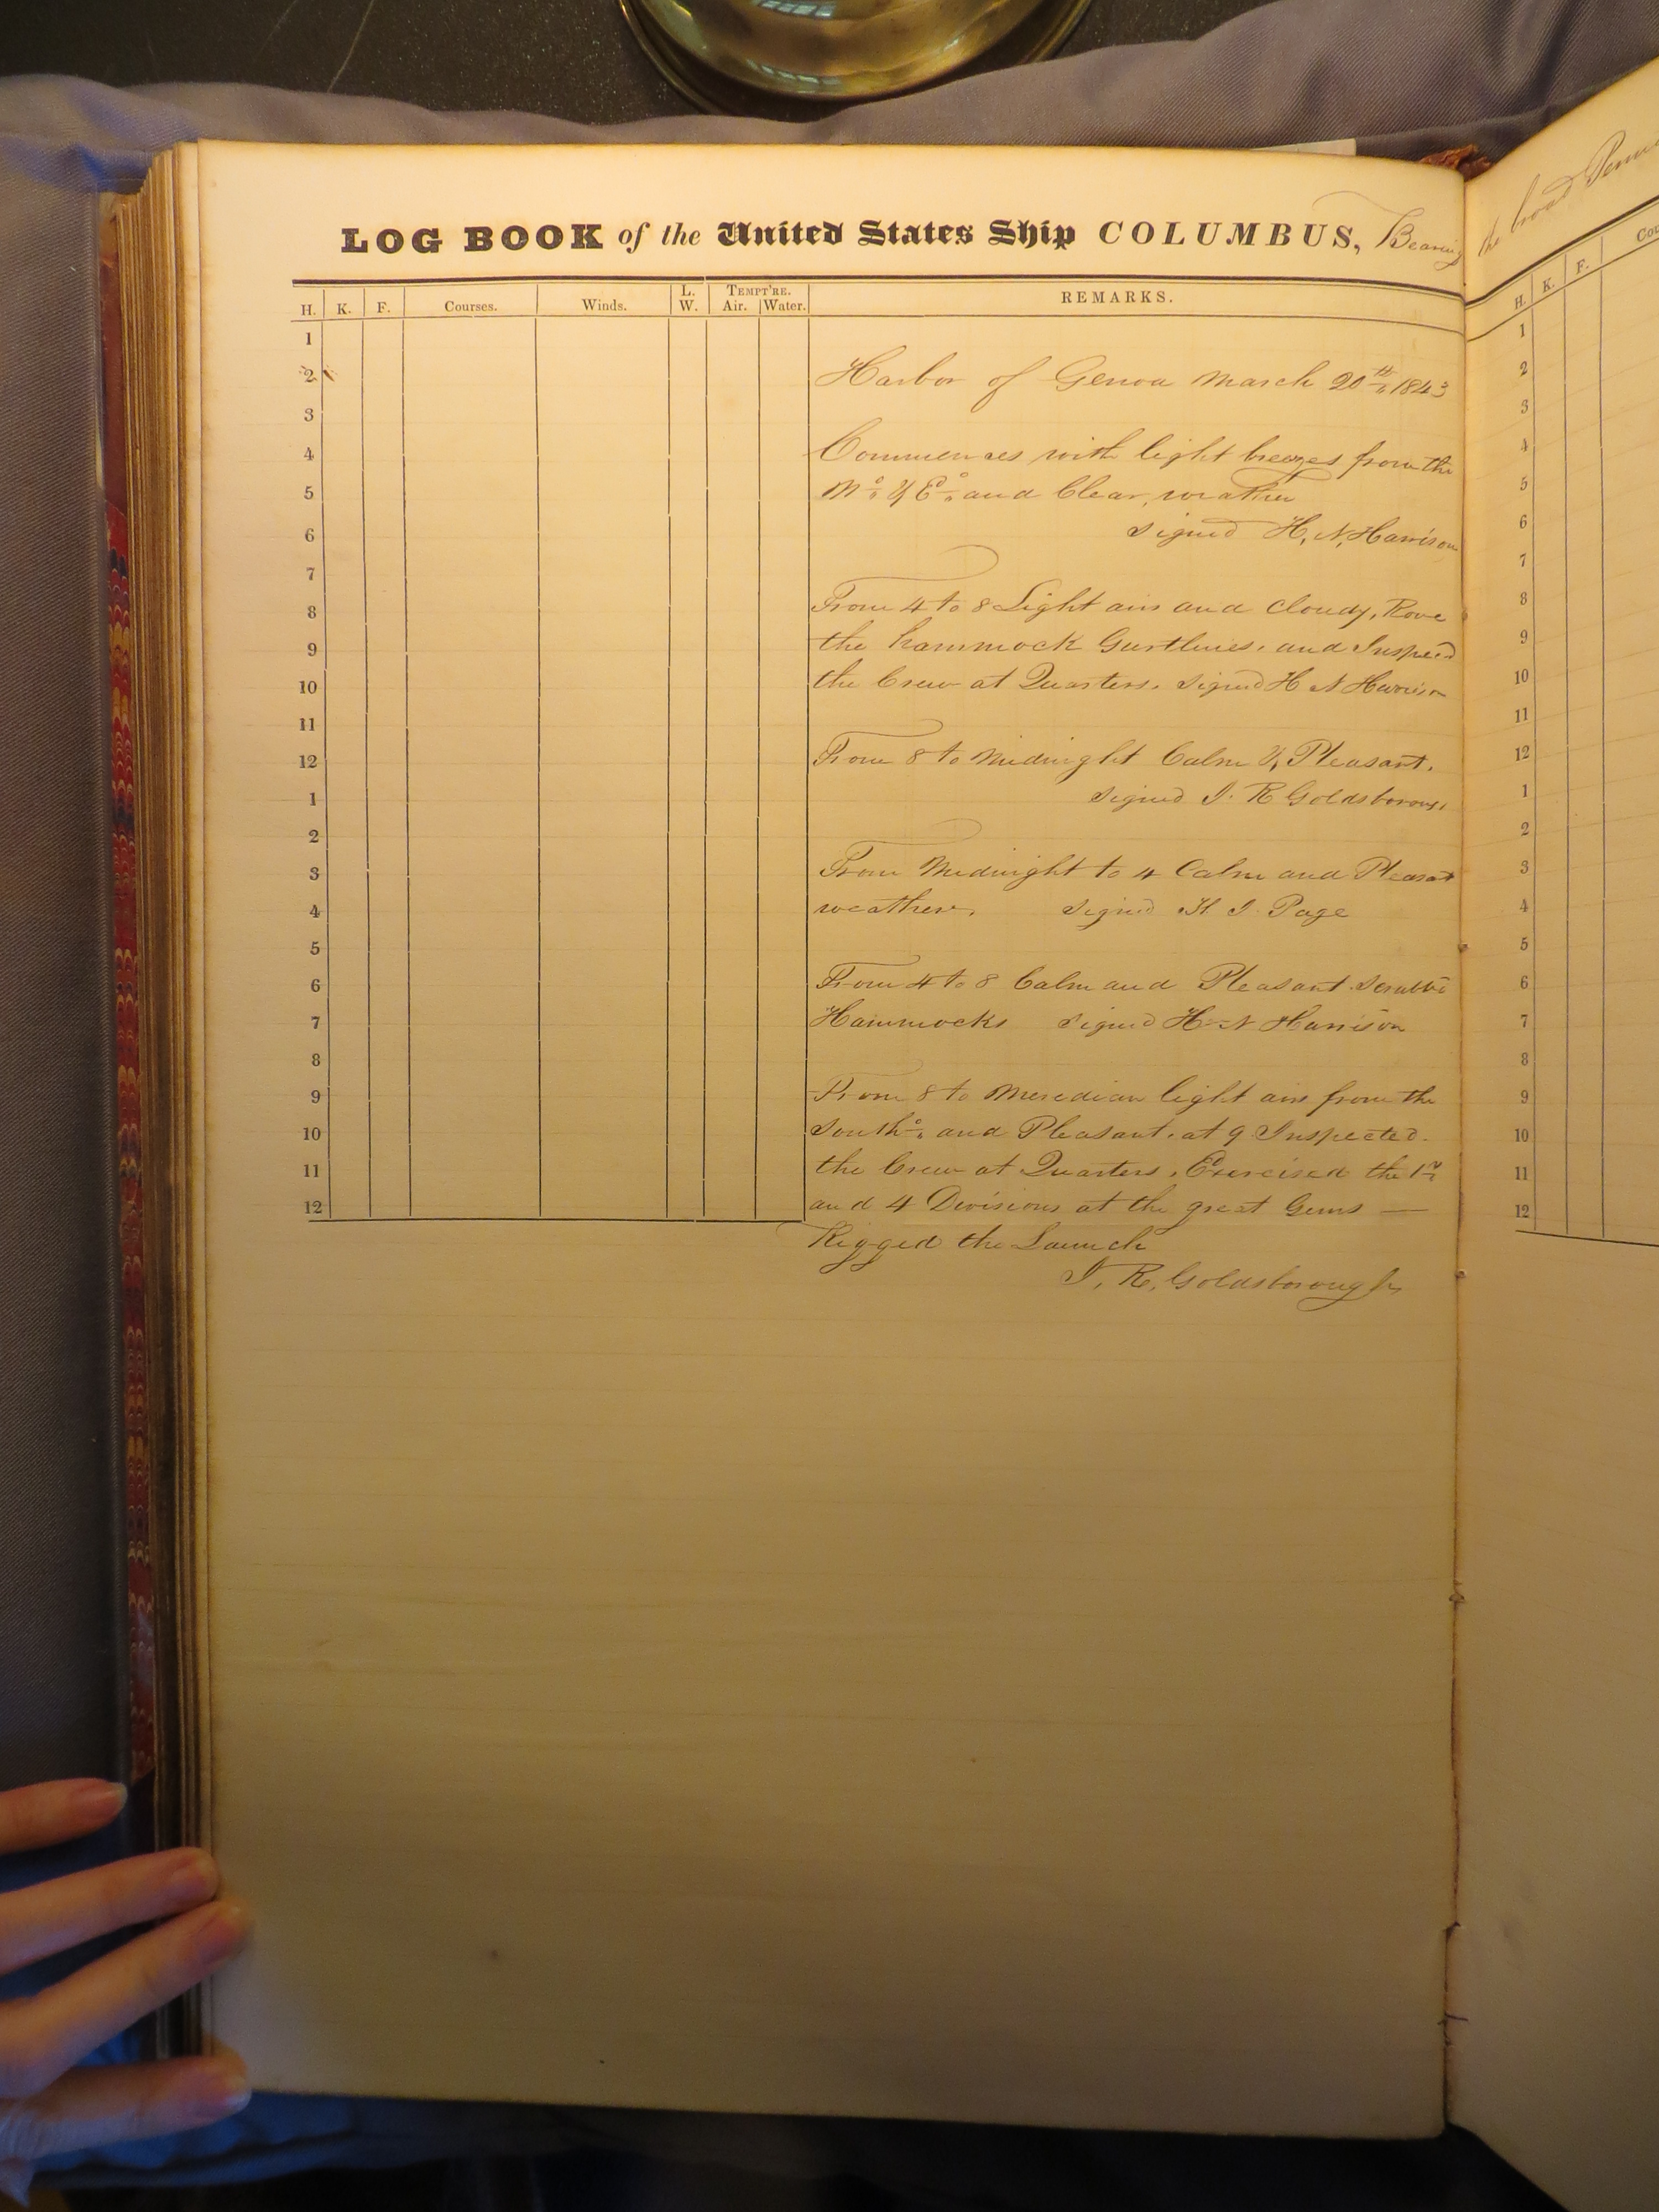 LOG BOOK of the United States Ship COLUMBUS, Bearing
the broad
H. K. F. Courses. Winds. L. W. TEMPT'RE. Air. Water. REMARKS.
H. K. F.
1
2
3
4
5
6
7
8
9
10
11
12
1
2
3
4
5
6
7
8
9
10
11
12
Harbor of Genoa March 20th 1843
Commences with light breezes from the
and Clear weather
signed H. N. Harrison
From 4 to 8 Light airs and Cloudy, Rove
the hammock Gartlines, and Inspec'd
the Crew at Quarters. signed H N Harrison
From 8 to Midnight Calm & Pleasant.
signed J. R Goldsboroug
From Midnight to 4 Calm and Pleasat
weather. signed H J Page
From 4 to 8 Calm and Pleasant. Scrubb'd
Hammocks signed H N Harrison
From 8 to Meredian light airs from the
South'd and Pleasant. at 9 Inspected
the Crew at Quarters. Exercised the 1st
and 4 Divisions at the great Guns —
Rigged the Launch
J. R. Goldsborough
1
2
3
4
5
6
7
8
9
10
11
12
1
2
3
4
5
6
7
8
9
10
11
12